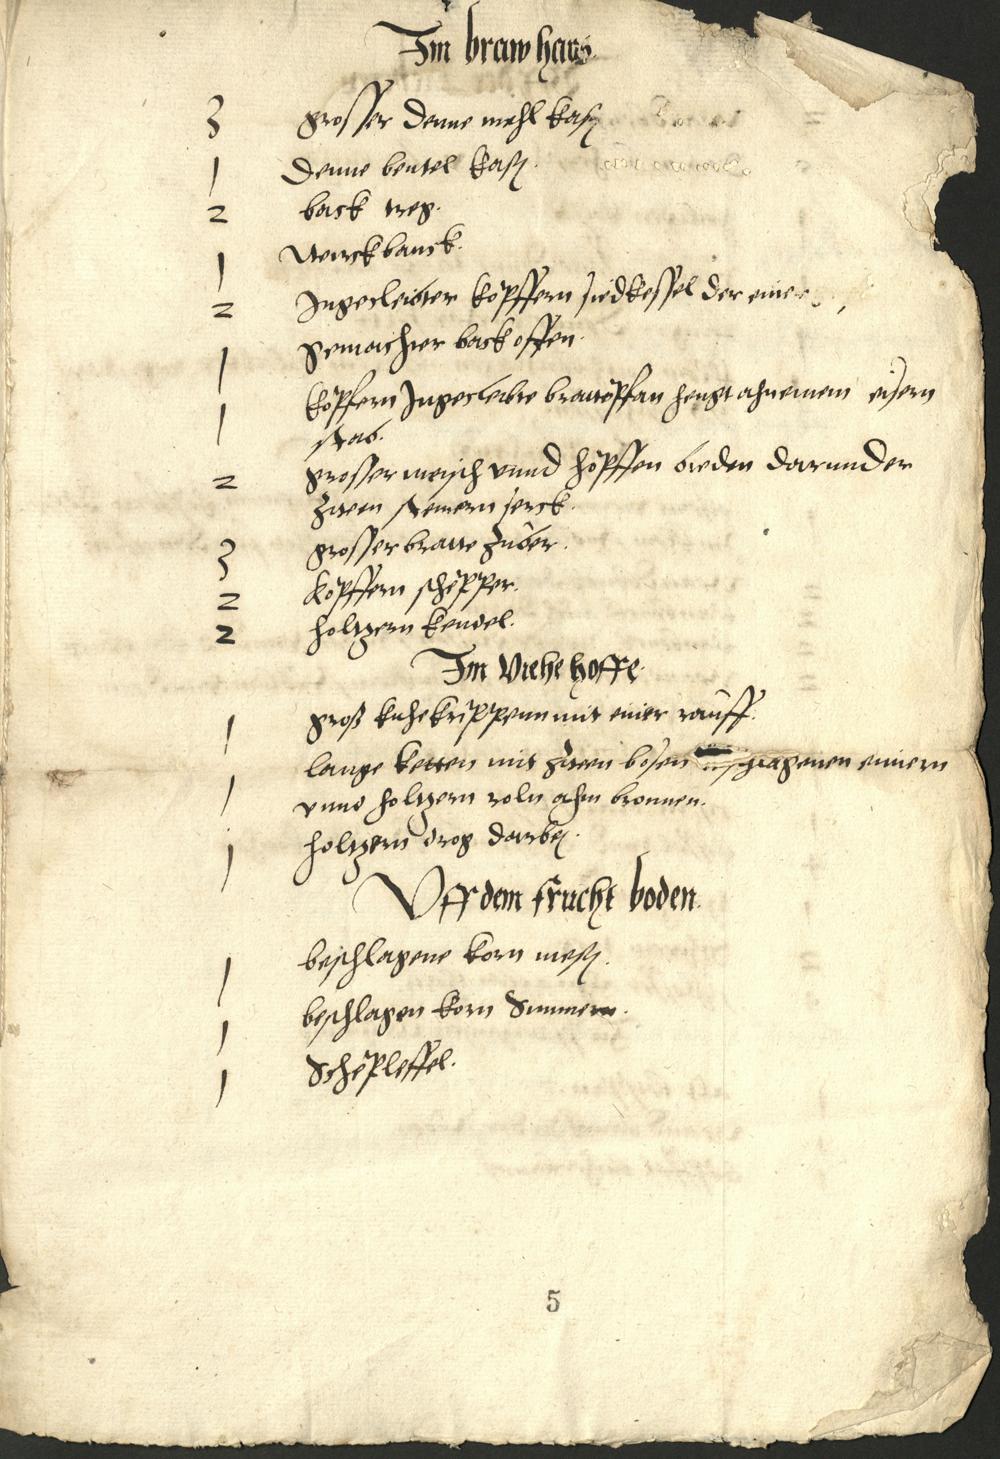 Im brawhaus
3 grosser denne mehl kasten
1 denne beutel kasten.
2 back treg.
1 Werckbanck.
2 Ingecleibter köpffern siedkessel der einer
1 gemaicher backoffen.
1 köpfern Ingecleibte brattöpfan hengt ahn einem eisern
stab.
2 grosser meisch vnnd höpffen bieden darunder
zween steinern serck.
3 grosser bratte züber.
2 köpffern schöpper.
2 holtzern kendel.
Im Viehehoffe
1 groß kuhekrippenn mit einer rauff.
1 lange ketten mit zween bösen einern
vnnd holtzern roln ahm bronnen.
1 holtzern drog darbej.
Vff dem frucht boden.
1 beschlagene korn mesten.
1 beschlagen korn Simmern.
1 Schöpleffel.
5